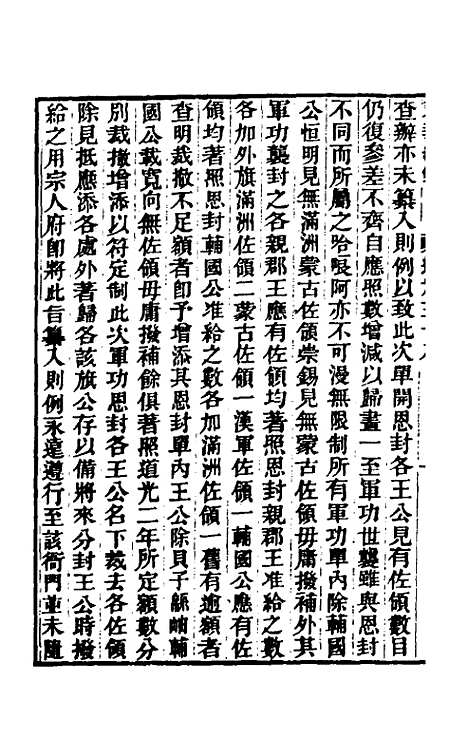 查辦亦未纂入則例以致此次單開恩封各王公見有佐領數目
仍復參差不齊自應照數增減以歸畫一至軍功世襲雖與恩封
不同而所屬之哈哴阿亦不可漫無限制所有軍功單內除輔國
公恒明見無滿洲蒙古佐領崇錫見無蒙古佐領毋庸撥補外其
軍功襲封之各親郡王應有佐領均著照恩封親郡王准給之數
各加外旗滿洲佐領二蒙古佐領一漢軍佐領一輔國公應有佐
領均著照恩封輔國公准給之數各加滿洲佐領一舊有逾額者
查明裁撤不足額者卽予增添其恩封單內王公除貝子綿岫輔
國公裁寬向無佐領毋庸撥補餘俱著照道光二年所定額數分
別裁撤增添以符定制此次軍功恩封各王公名下裁去各佐領
除見抵應添各處外著歸各該旗公存以備將來分封王公時撥
給之用宗人府卽將此旨纂入則例永遠遵行至該衙門並未隨